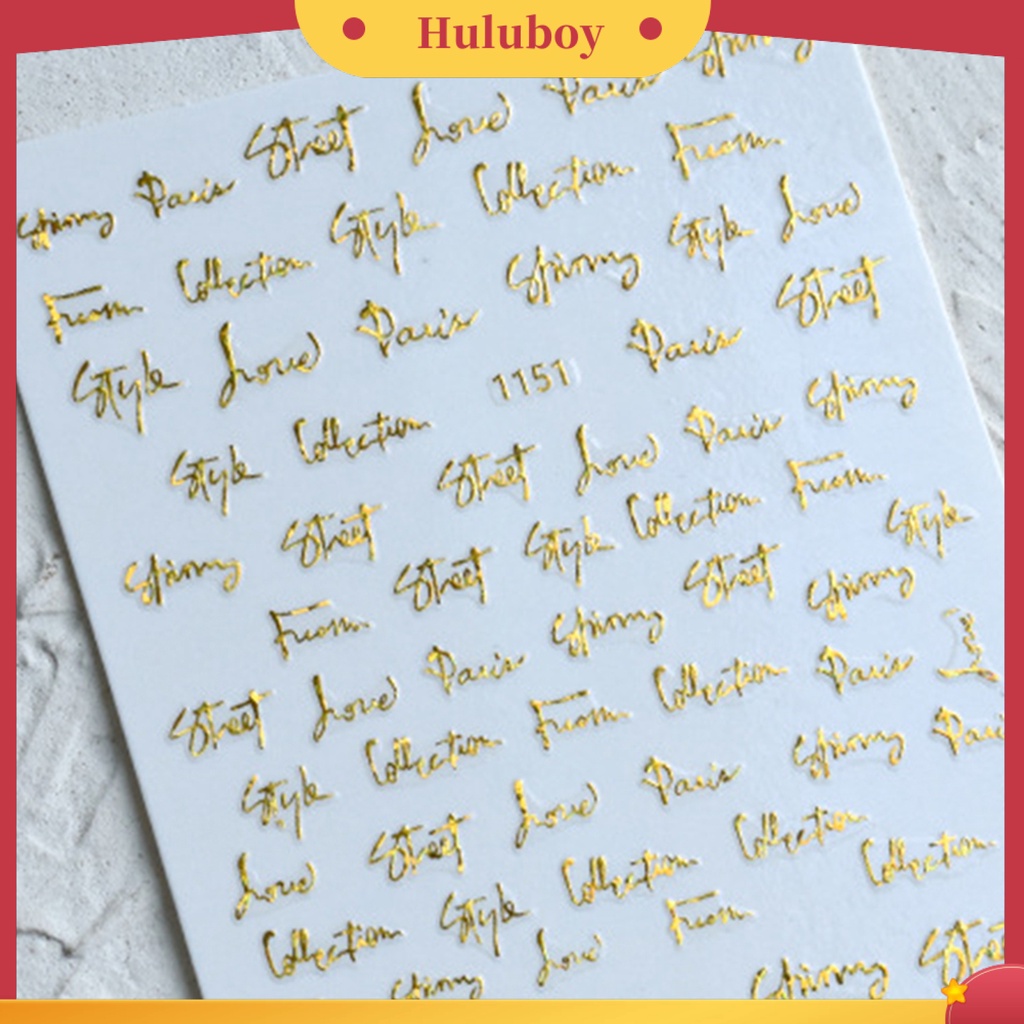 Huluboy
Street Love Paris Spring
Spring Paris
Style Collection From
From Collection
Spring Style Love
Style Love Paris
1151 Paris Street
Style Collection
Street Love Paris Spring
Spring Street
Style Collection From
From Street
Spring Street Spring Style
Street Love Paris
Collection From Collection Paris Love
Style
Love Street Love Paris Spring Paris
Collection Style Collection Collection Collection
Spring Love From
Spring Street